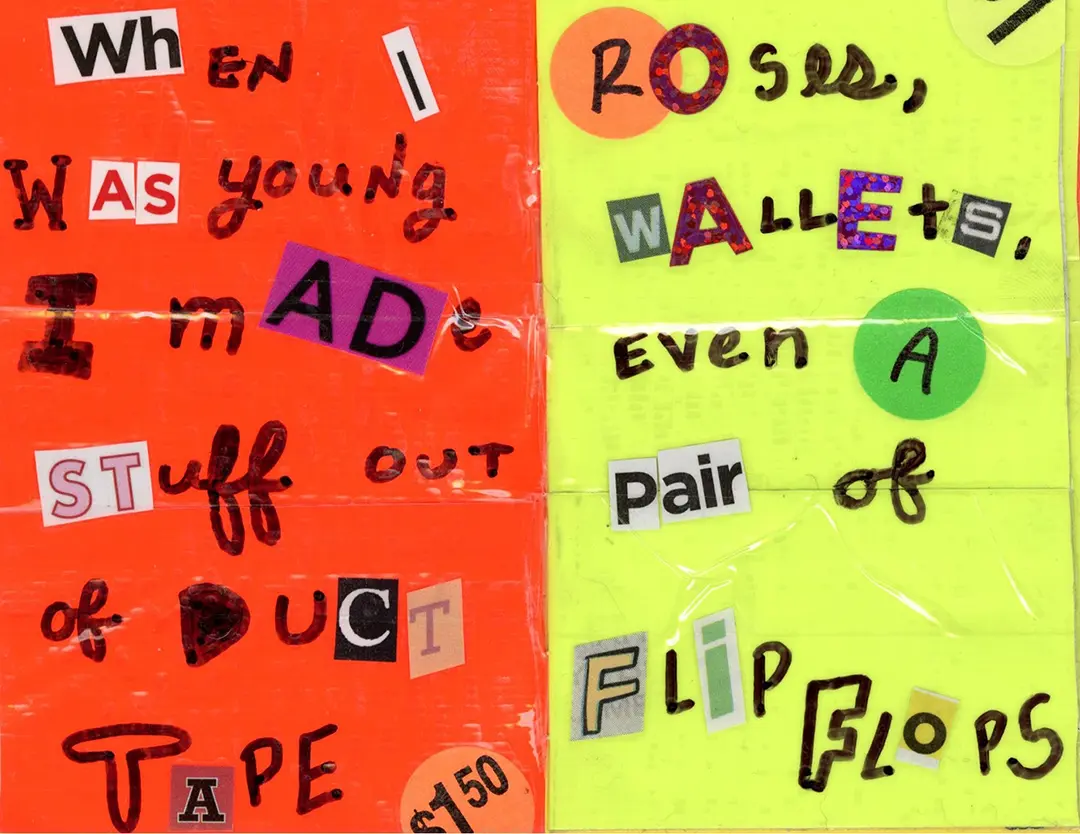 When I
was young
I mADe
STuff OUT
of DUCT
TAPE
$1.50
ROses,
wALLEtS,
Even A
pair of
FLiP
FLOPS